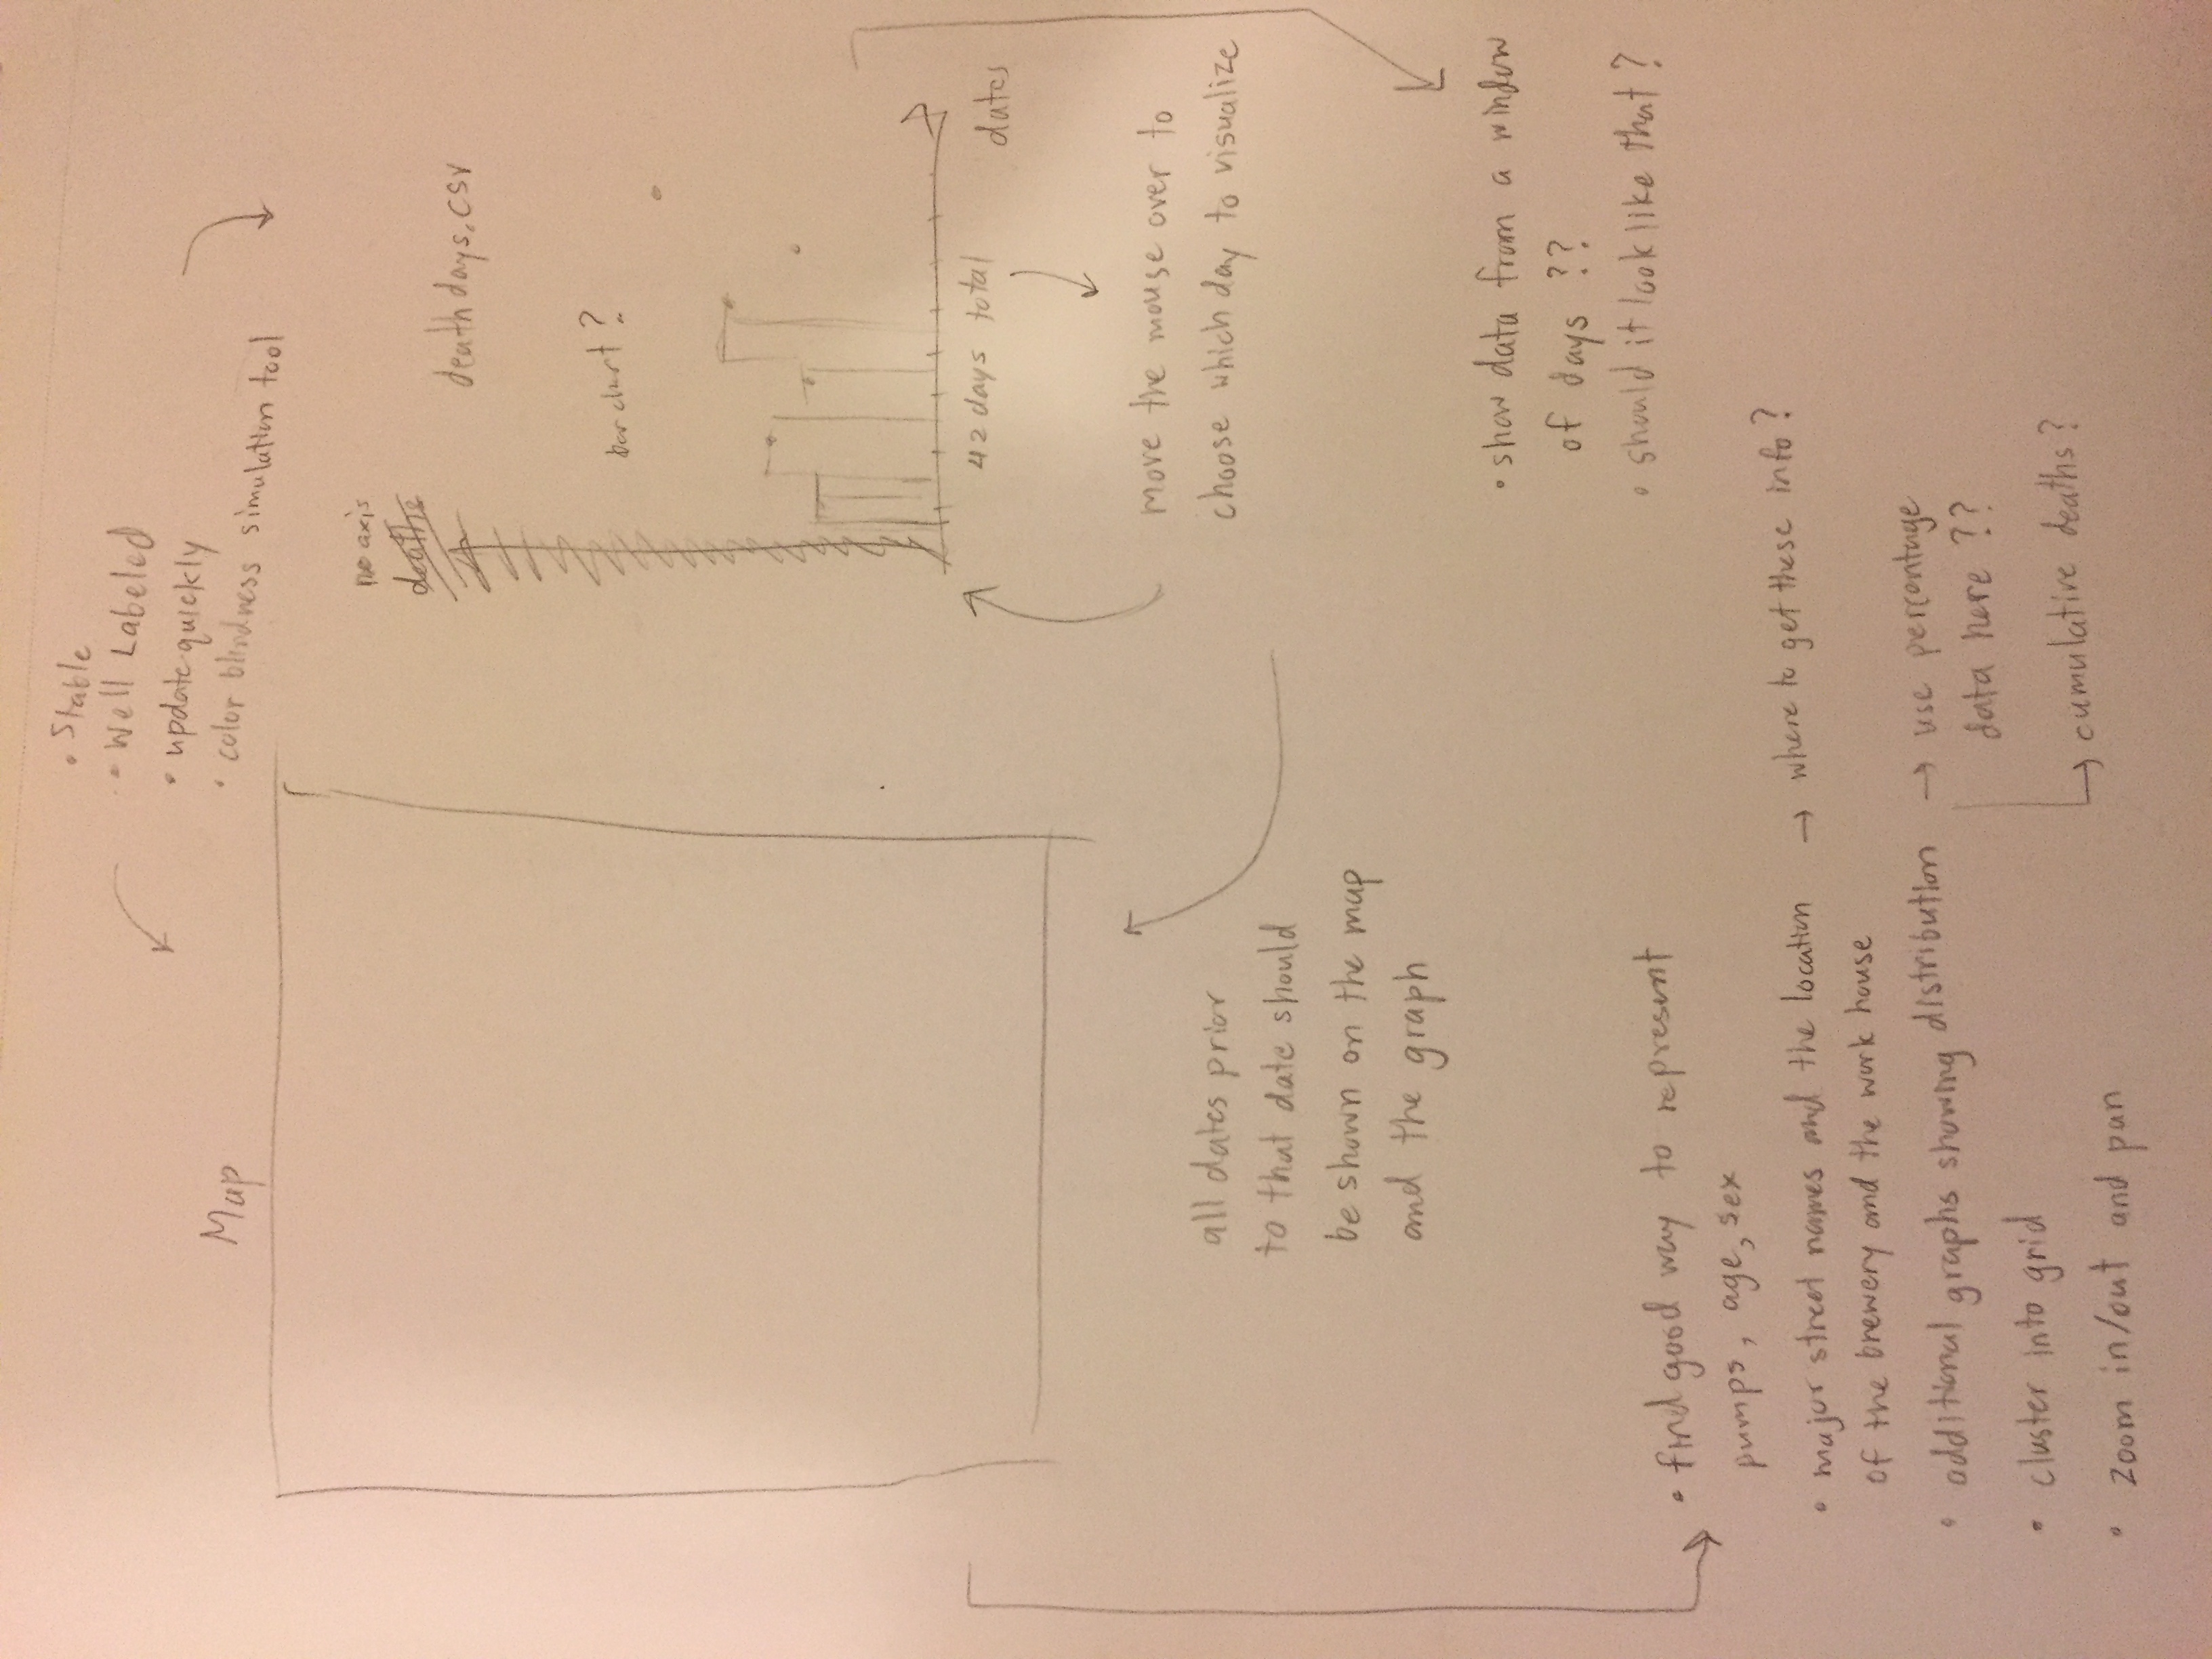 • Stable
• Well Labeled
• update quickly
• color blindness simulation tool
Map
no axis
deaths
deathdays.csv
bar chart?
42 days total
dates
move the mouse over to
choose which day to visualize
all dates prior
to that date should
be shown on the map
and the graph
• show data from a window
of days ??
• should it look like that?
• find good way to represent
pumps, age, sex
• major street names and the location → where to get these info?
of the brewery and the work house
• additional graphs showing distribution → use percentage
data here ??
→ cumulative deaths?
• cluster into grid
• zoom in/out and pan